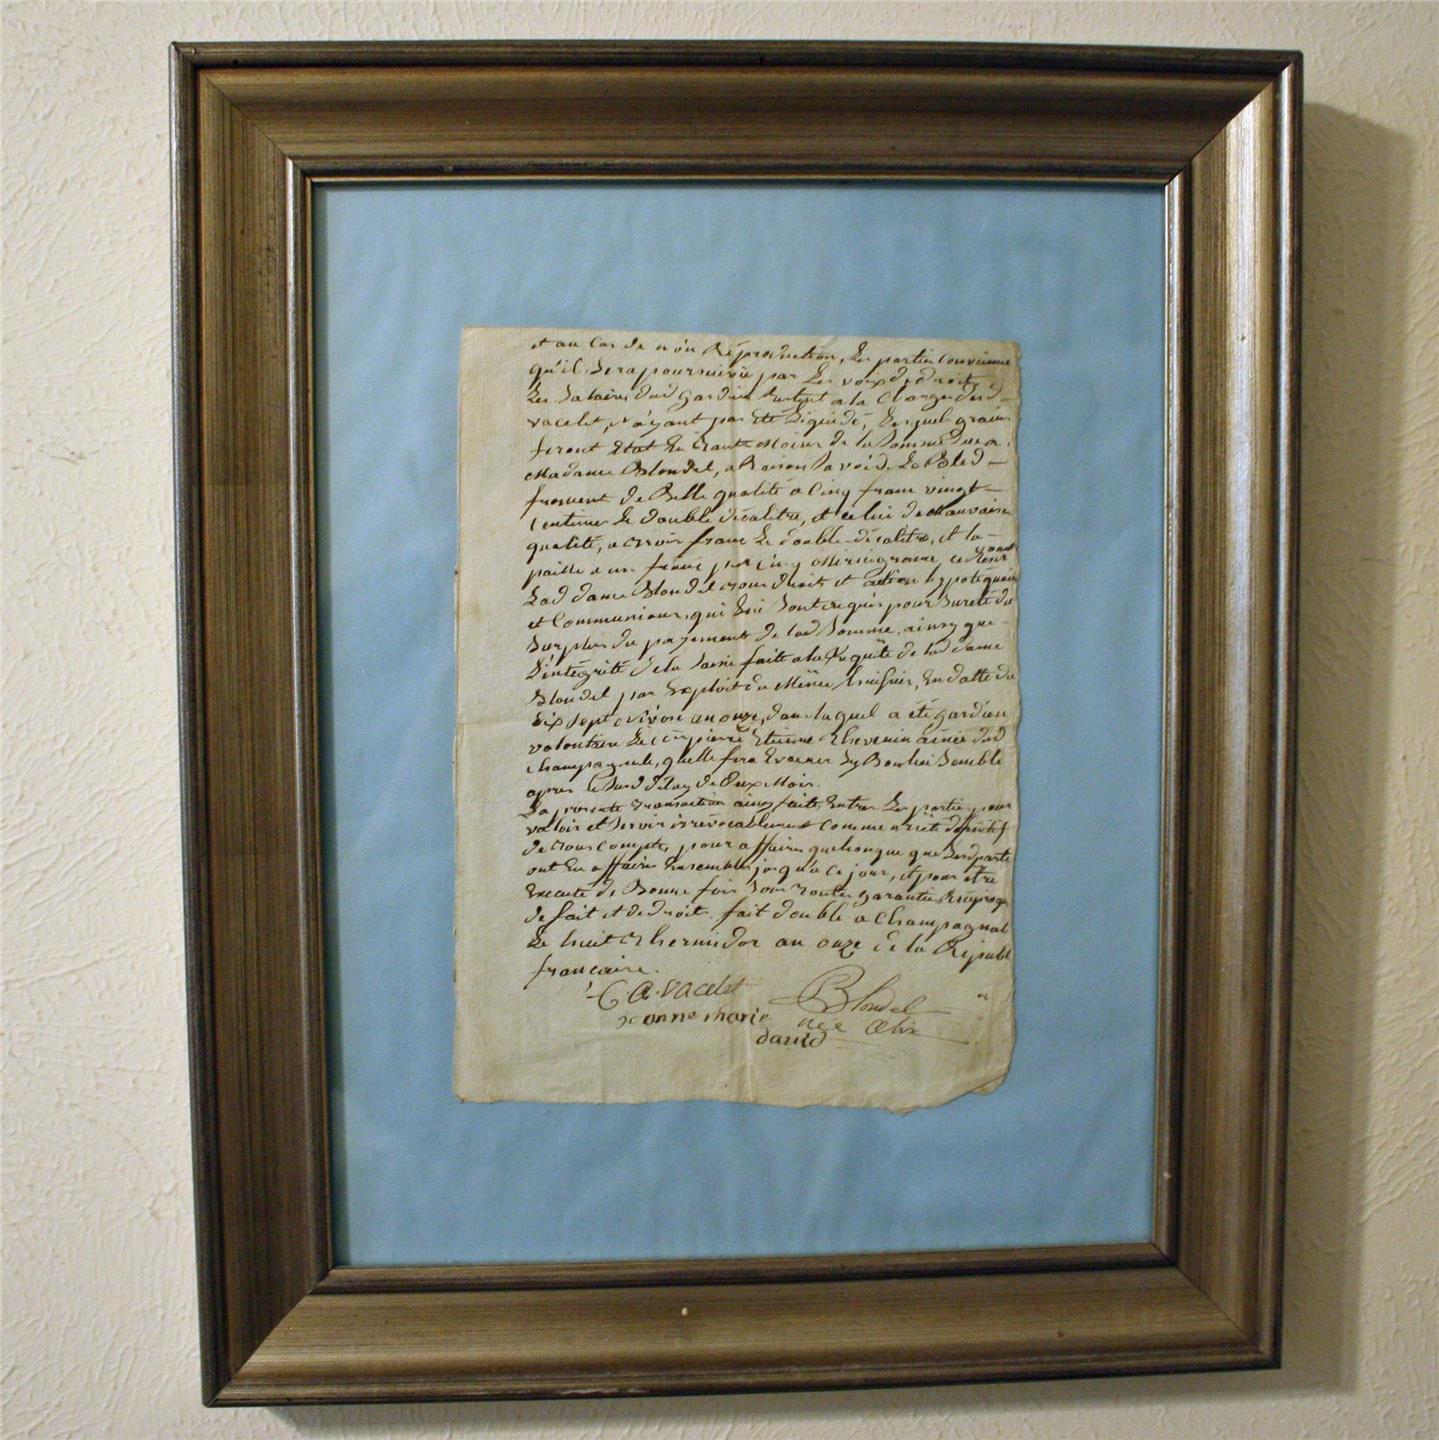 et au Cas de non Réproduction, Les parties Conviennent
qu'il Sera poursuivie par Les voix de droit,
Les Salaires dud Gardien Restent a la Charge dud
vacelet, N'ayant pas Eté Liquidé, Lesquel grains
feront Etat En Toute Moins de la Somme due a
Madame Blondel, a Raison Savoir Le Bled
froment de Belle qualité a Cinq franc vingt
Centimes Le double décalitre, et celui de Mauvaise
qualité, a Trois franc Le double décalitre, et la
paille a un franc par Cinq Miriagrame,
Lad dame Blondel Tous droits et action hypotéquaire
et Communiaux, qui Lui Sont acquis pour Sureté du
Surplus du payement de lad Somme, ainsy que
L'intégrité de la Saisie faite a la Requête de lad dame
Blondel par Exploit du Même huissier, En datte du
Dix Sept Nivose an onze, dans laquel a été gardien
volontaire Le pierre Etienne Thevenin ainée dud
Champagnole, quelle fera Evacuer Sy Bon lui Semble
apres Le Susd délay de Deux Mois.
La présente Transaction ainsy faite Entre Les parties pour
valoir et Servir irrévocablement comme arrêté définitif
de Tous Comptes, pour affaires quelconque que Lesd partie
ont Eu affaire Ensemble jusqu'a ce jour, et pour etre
Executé de Bonne foix Sous Toutes garantie Réciproque
de fait et de droit. fait double a Champagnol
Le huit Thermidor an onze de la Républ
francaise.
C. A. vacelet Blondel
jeanne marie née
david